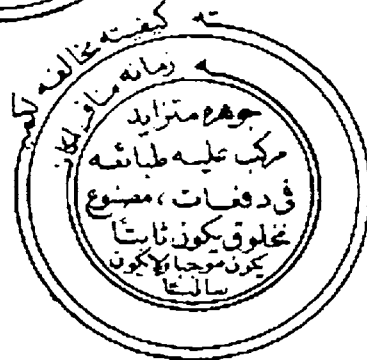 ته كيفيته مخالفه لكميـ
ـه زمانه منافر لمكانـ
جوهره متزايد
مركب عليه طبائعه
في دفعات ، مصنوع
مخلوق يكون ثابتًا
يكون موجبا ولا يكون
سالبتًا